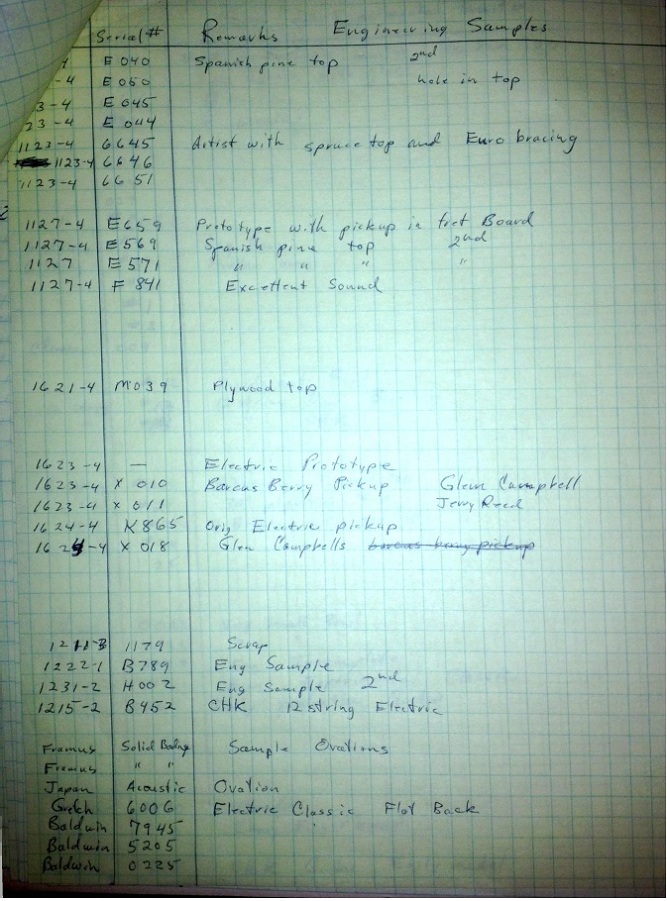 Serial # Remarks Engineering Samples
4 E 040 Spanish pine top 2nd
-4 E 060 hole in top
3-4 E 045
23-4 E 044
1123-4 6645 Artist with spruce top and Euro bracing
1123-4 6646
1123-4 6651
1127-4 E659 Prototype with pickup in fret Board
1127-4 E569 Spanish pine top 2nd
1127 E571 " " " "
1127-4 F 841 Excellent Sound
1621-4 M039 Plywood top
1623-4 — Electric Prototype
1623-4 X 010 Barcus Berry Pickup Glen Campbell
1623-4 X 011 Jerry Reed
1624-4 K865 Orig Electric pickup
1624-4 X 018 Glen Campbells barcus berry pickup
1179 Scrap
1222-1 B789 Eng Sample
1231-2 H002 Eng Sample 2nd
1215-2 B452 CHK 12 string Electric
Framus Solid Sample Ovations
Framus " "
Japan Acoustic Ovation
Gretch 6006 Electric Classic Flat Back
Baldwin 7945
Baldwin 5205
Baldwin 0225